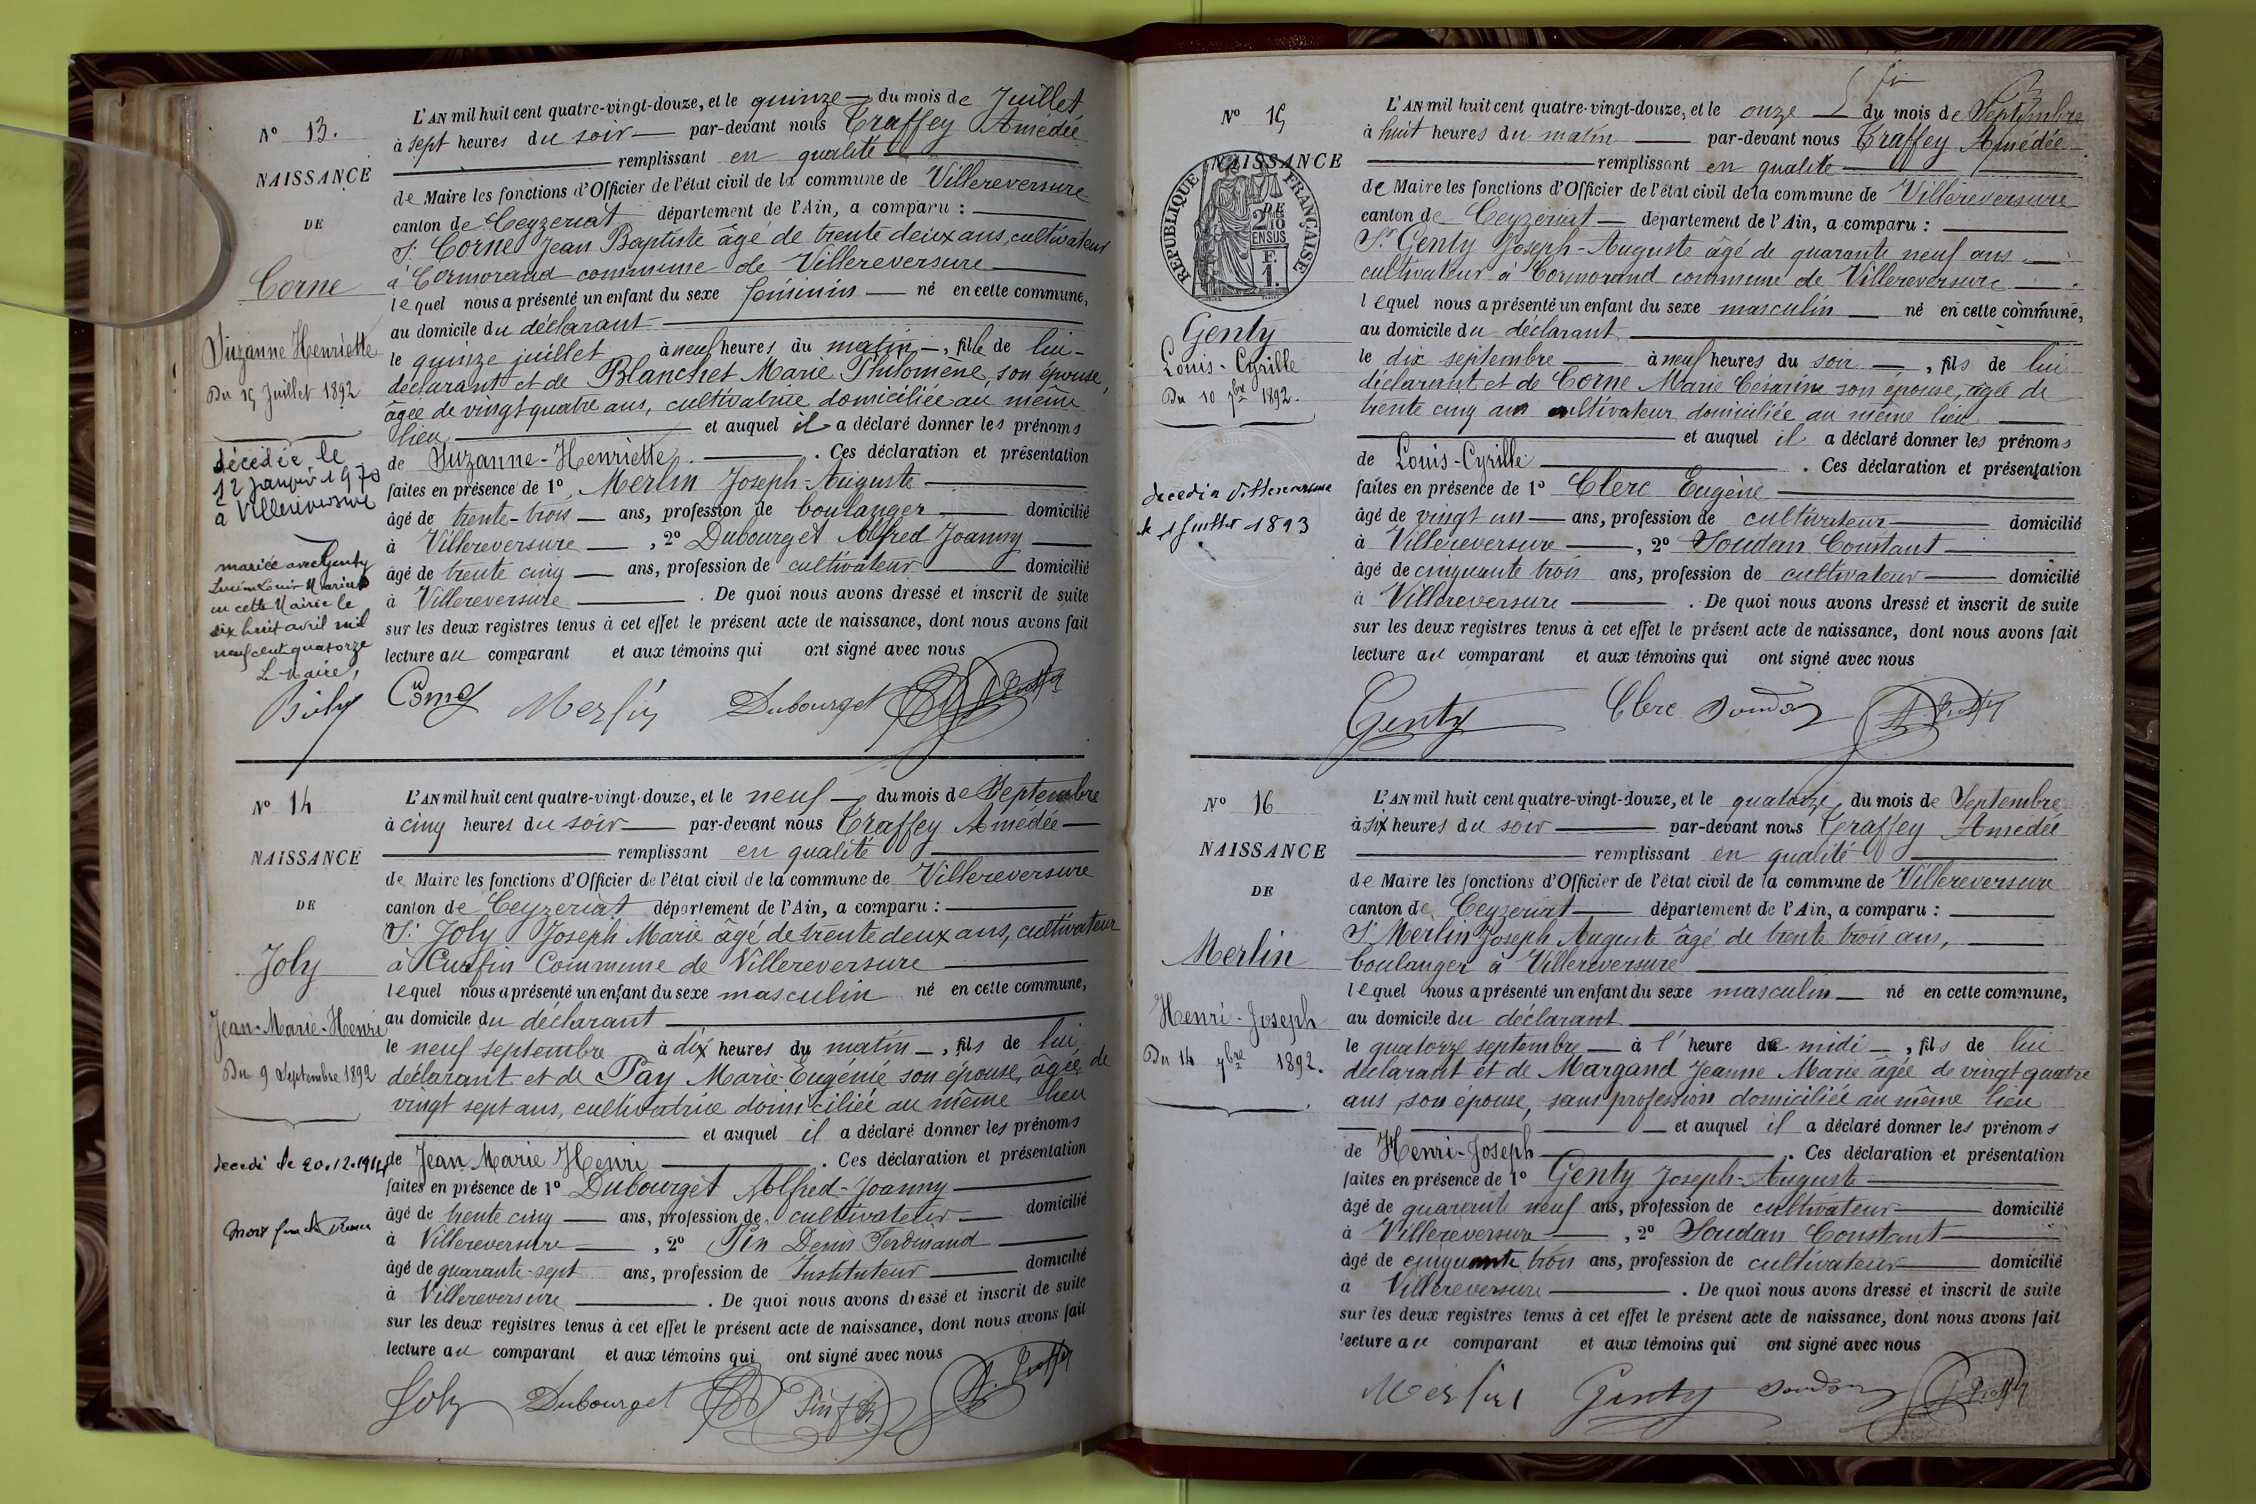 N° 13.
NAISSANCE
DE
Corne
Suzanne Henriette
Du 15 Juillet 1892
décédée le
12 janvier 1970
à Villereversure
mariée avec Genty
Lucien Louis Marius
en cette Mairie le
dix huit avril mil
neuf cent quatorze
Le Maire,
L'AN mil huit cent quatre-vingt-douze, et le quinze du mois de Juillet
à sept heures du soir par-devant nous Traffey Amédée
remplissant en qualité
de Maire les fonctions d'Officier de l'état civil de la commune de Villereversure
canton de Ceyzeriat département de l'Ain, a comparu :
Sr Corne Jean Baptiste âgé de trente deux ans, cultivateur
à Cormorand commune de Villereversure
lequel nous a présenté un enfant du sexe féminin né en cette commune,
au domicile du déclarant
le quinze juillet à neuf heures du matin, fille de lui-
déclarant et de Blanchet Marie Philomène, son épouse,
âgée de vingt quatre ans, cultivatrice domiciliée au même
lieu et auquel il a déclaré donner les prénoms
de Suzanne-Henriette. Ces déclaration et présentation
faites en présence de 1° Merlin Joseph-Auguste
âgé de trente-trois ans, profession de boulanger domicilié
à Villereversure, 2° Dubourget Alfred Joanny
âgé de trente cinq ans, profession de cultivateur domicilié
à Villereversure. De quoi nous avons dressé et inscrit de suite
sur les deux registres tenus à cet effet le présent acte de naissance, dont nous avons fait
lecture au comparant et aux témoins qui ont signé avec nous
Corne Merlin Dubourget A. Traffey
N° 14
NAISSANCE
DE
Joly
Jean-Marie-Henri
Du 9 Septembre 1892
décédé le 20.12.1914
Mort pour la France
L'AN mil huit cent quatre-vingt-douze, et le neuf du mois de Septembre
à cinq heures du soir par-devant nous Traffey Amédée
remplissant en qualité
de Maire les fonctions d'Officier de l'état civil de la commune de Villereversure
canton de Ceyzeriat département de l'Ain, a comparu :
Sr Joly Joseph Marie âgé de trente deux ans, cultivateur
à Curfin Commune de Villereversure
lequel nous a présenté un enfant du sexe masculin né en cette commune,
au domicile du déclarant
le neuf septembre à dix heures du matin, fils de lui
déclarant et de Pay Marie-Eugénie son épouse, âgée de
vingt sept ans, cultivatrice domiciliée au même lieu
et auquel il a déclaré donner les prénoms
de Jean Marie Henri. Ces déclaration et présentation
faites en présence de 1° Dubourget Alfred-Joanny
âgé de trente cinq ans, profession de cultivateur domicilié
à Villereversure, 2° Pin Denis Ferdinand
âgé de quarante-sept ans, profession de Instituteur domicilié
à Villereversure. De quoi nous avons dressé et inscrit de suite
sur les deux registres tenus à cet effet le présent acte de naissance, dont nous avons fait
lecture au comparant et aux témoins qui ont signé avec nous
Joly Dubourget Pin A. Traffey
N° 15
NAISSANCE
DE
RÉPUBLIQUE FRANÇAISE
2/10 EN SUS
F. 1.
Genty
Louis-Cyrille
Du 10 7bre 1892.
décédé à Villereversure
le 1 Juillet 1893
L'AN mil huit cent quatre-vingt-douze, et le onze du mois de Septembre
à huit heures du matin par-devant nous Traffey Amédée
remplissant en qualité
de Maire les fonctions d'Officier de l'état civil de la commune de Villereversure
canton de Ceyzeriat département de l'Ain, a comparu :
Sr Genty Joseph-Auguste âgé de quarante neuf ans
cultivateur à Cormorand commune de Villereversure
lequel nous a présenté un enfant du sexe masculin né en cette commune,
au domicile du déclarant
le dix septembre à neuf heures du soir, fils de lui
déclarant et de Corne Marie Césarine son épouse, âgée de
trente cinq ans cultivateur domiciliée au même lieu
et auquel il a déclaré donner les prénoms
de Louis-Cyrille. Ces déclaration et présentation
faites en présence de 1° Clerc Eugène
âgé de vingt un ans, profession de cultivateur domicilié
à Villereversure, 2° Soudan Constant
âgé de cinquante trois ans, profession de cultivateur domicilié
à Villereversure. De quoi nous avons dressé et inscrit de suite
sur les deux registres tenus à cet effet le présent acte de naissance, dont nous avons fait
lecture au comparant et aux témoins qui ont signé avec nous
Genty Clerc Soudan A. Traffey
N° 16
NAISSANCE
DE
Merlin
Henri-Joseph
Du 14 7bre 1892.
L'AN mil huit cent quatre-vingt-douze, et le quatorze du mois de Septembre
à six heures du soir par-devant nous Traffey Amédée
remplissant en qualité
de Maire les fonctions d'Officier de l'état civil de la commune de Villereversure
canton de Ceyzeriat département de l'Ain, a comparu :
Sr Merlin Joseph Auguste âgé de trente trois ans,
boulanger à Villereversure
lequel nous a présenté un enfant du sexe masculin né en cette commune,
au domicile du déclarant
le quatorze septembre à l'heure de midi, fils de lui
déclarant et de Margand Jeanne Marie âgée de vingt quatre
ans, son épouse, sans profession domiciliée au même lieu
et auquel il a déclaré donner les prénoms
de Henri-Joseph. Ces déclaration et présentation
faites en présence de 1° Genty Joseph-Auguste
âgé de quarante neuf ans, profession de cultivateur domicilié
à Villereversure, 2° Soudan Constant
âgé de cinquante trois ans, profession de cultivateur domicilié
à Villereversure. De quoi nous avons dressé et inscrit de suite
sur les deux registres tenus à cet effet le présent acte de naissance, dont nous avons fait
lecture au comparant et aux témoins qui ont signé avec nous
Merlin Genty Soudan A. Traffey